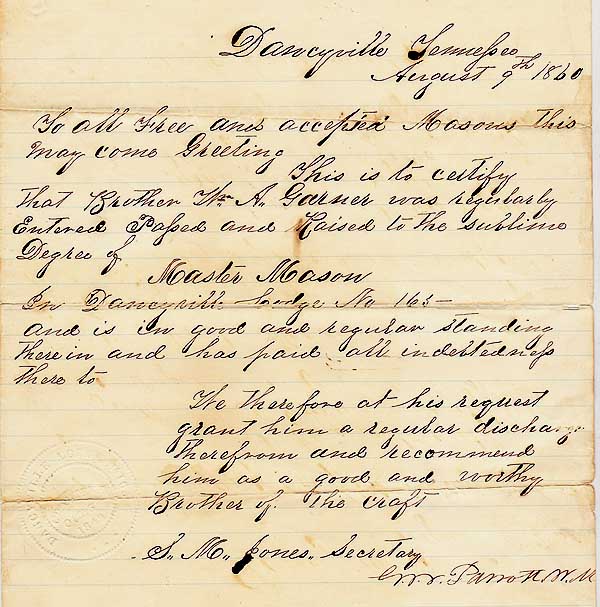 Dancyville Tennessee
August 9th 1860
To all Free and accepted Masons this
may come Greeting
This is to certify
that Brother Wm A. Garner was regularly
Entered Passed and Raised to the sublime
Degree of
Master Mason
In Dancyville Lodge No 165
and is in good and regular standing
therein and has paid all indebtedness
there to
We therefore at his request
grant him a regular discharge
therefrom and recommend
him as a good and worthy
Brother of the craft
S. M. Jones. Secretary
Parrott W. M